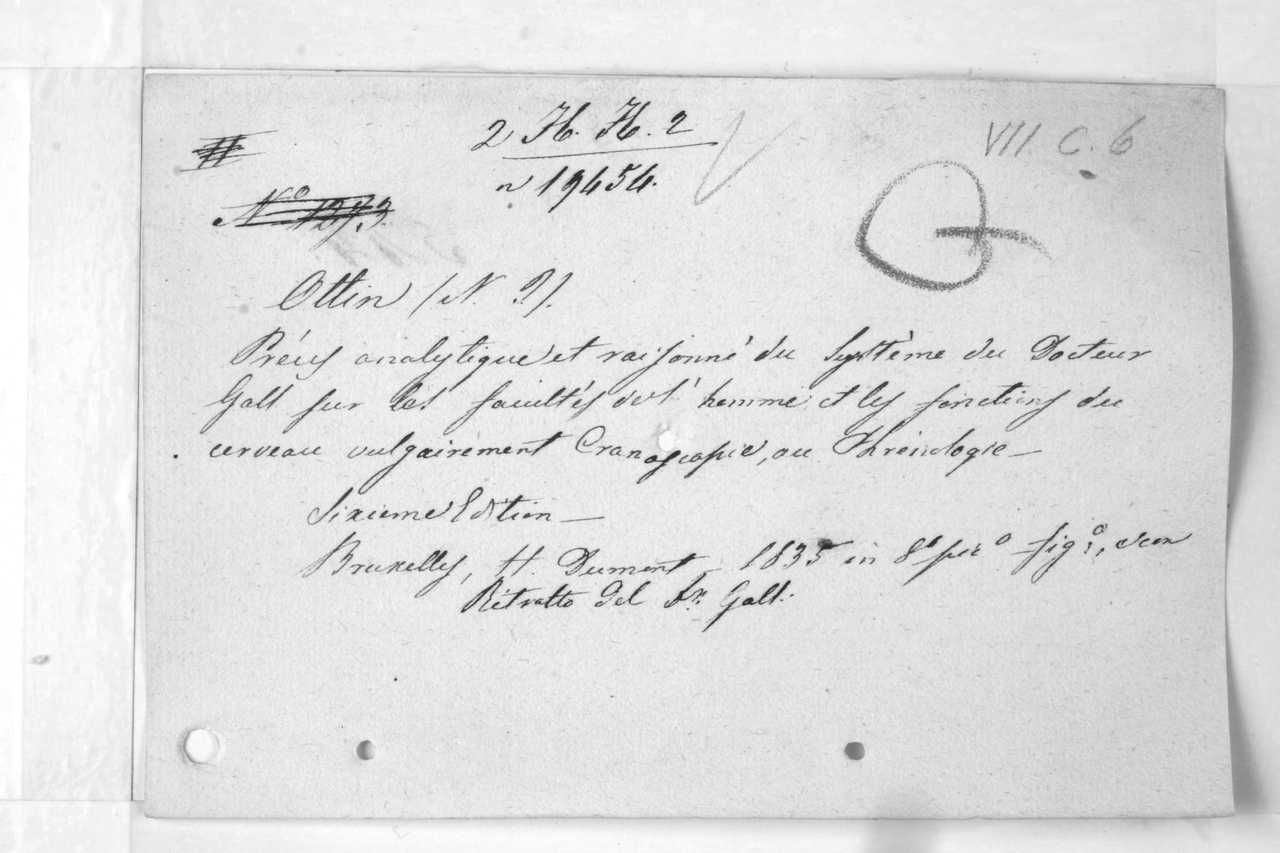 2 H. H. 2
VII C. 6
n 19454.
Nº 1273.
Ottin (N. J).
Précis analytique et raisonné du Système du Docteur
Gall sur les facultés de l'homme et les fonctions du
cerveau vulgairement Cranoscopie, ou Phrénologie —
Sixieme Edition —
Bruxelles, H. Dumont 1835 in 8º picº figº, con
Ritratto del Dr. Gall.